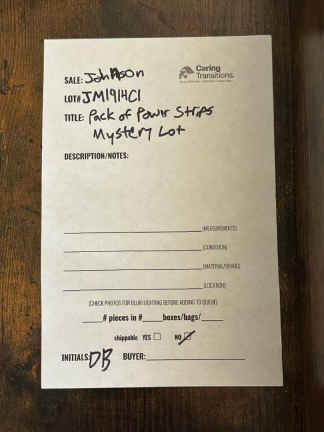 Caring
Transitions
SALE: Johnson
LOT# JM1914C1
TITLE: Pack of Powr Strips
Mystery Lot
DESCRIPTION/NOTES:
(MEASUREMENTS)
(CONDITION)
(LOCATION)
(CHECK PHOTOS FOR BLUR/LIGHTING BEFORE ADDING TO QUEUE)
# pieces in boxes/bags/
shippable YES NO
INITIALS DB BUYER: